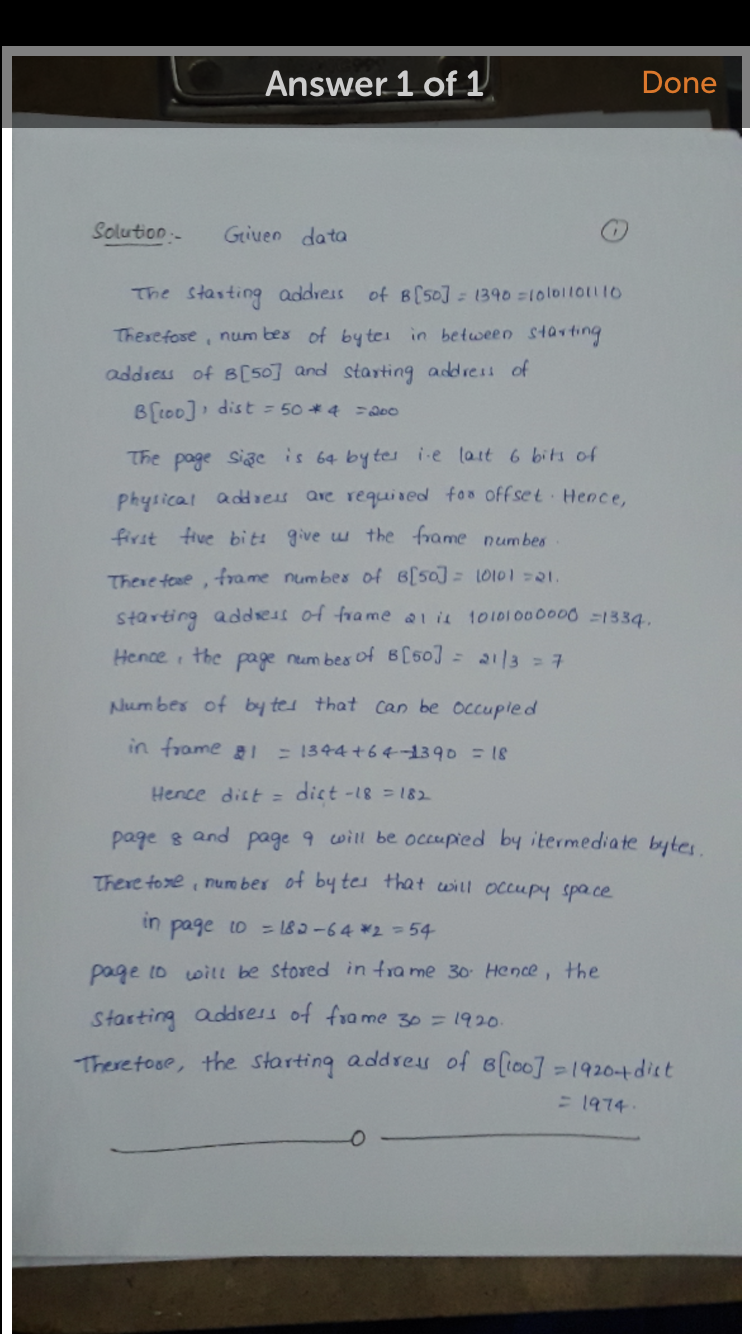 Answer 1 of 1
Done
Solution:- Given data
1
The starting address of B[50] = 1390 = 10101101110
Therefore, number of bytes in between starting
address of B[50] and starting address of
B[100], dist = 50 * 4 = 200
The page size is 64 bytes i.e last 6 bits of
physical address are required for offset. Hence,
first five bits give us the frame number.
Therefore, frame number of B[50] = 10101 = 21.
starting address of frame 21 is 10101000000 = 1334.
Hence, the page number of B[50] = 21/3 = 7
Number of bytes that can be occupied
in frame 21 = 1344+64-1390 = 18
Hence dist = dist -18 = 182
page 8 and page 9 will be occupied by itermediate bytes.
Therefore, number of bytes that will occupy space
in page 10 = 182-64*2 = 54
page 10 will be stored in frame 30. Hence, the
starting address of frame 30 = 1920.
Therefore, the starting address of B[100] = 1920+dist
= 1974.